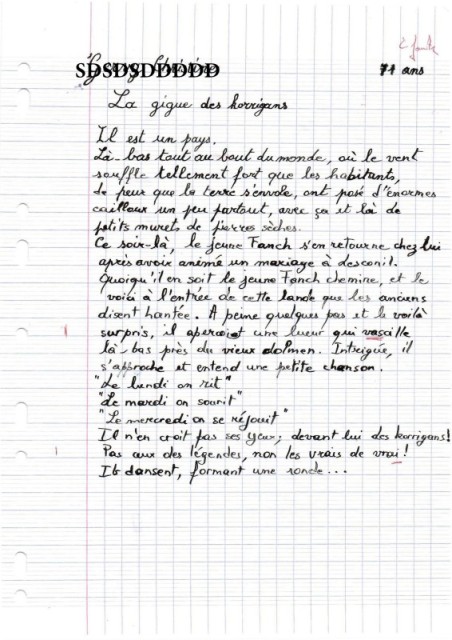 2 fautes
SDSDSDDDDD 71 ans
La gigue des korrigans
Il est un pays.
Là-bas tout au bout du monde, où le vent
souffle tellement fort que les habitants,
de peur que la terre s'envole, ont posé d'énormes
cailloux un peu partout, avec ça et là de
petits murets de pierres sèches.
Ce soir-là, le jeune Fanch s'en retourne chez lui
après avoir animé un mariage à desconil.
Quoiqu'il en soit le jeune Fanch chemine, et le
voici à l'entrée de cette lande que les anciens
disent hantée. A peine quelques pas et le voilà
surpris, il aperçoit une lueur qui vascille
là-bas près du vieux dolmen. Intrigué, il
s'approche et entend une petite chanson.
"Le lundi on rit"
"Le mardi on sourit"
"Le mercredi on se réjouit"
Il n'en croit pas ses yeux; devant lui des korrigans!
Pas ceux des légendes, non les vrais de vrai!
Ils dansent, formant une ronde...